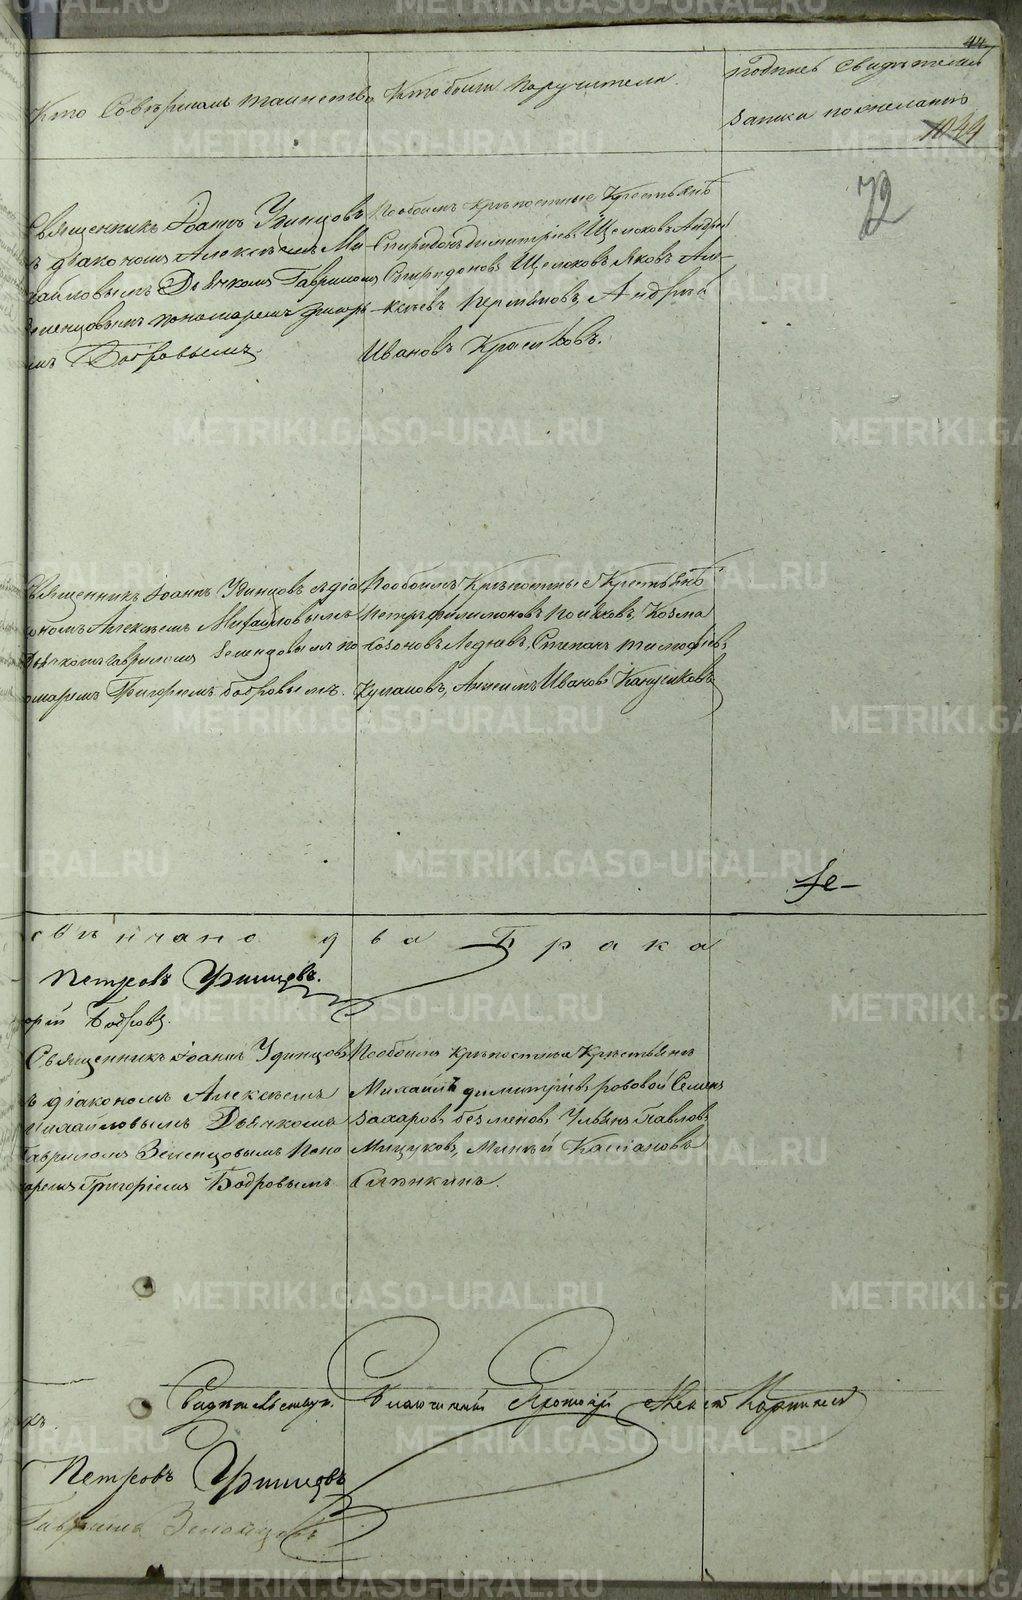 44
Кто Совершалъ таинство
Кто были Поручители.
подпись свидѣтелей
записи по желанію
1044
72
Священникъ Іоаннъ Удинцовъ
съ діакономъ Алексѣемъ Ми-
хайловымъ Дьячкомъ Гавриломъ
Зеленцовымъ пономаремъ Григорі-
емъ Бодровымъ.
По обоимъ крѣпостные Крестьянъ
Спиридонъ Димитріевъ Щелоковъ Андрей
Спиридоновъ Щелоковъ Яковъ Але-
ксѣевъ Пермяковъ, Андрей
Ивановъ Красиковъ.
Священникъ Іоаннъ Удинцовъ съ діа
кономъ Алексѣемъ Михайловымъ
Дьячкомъ Гавриломъ Зеленцовымъ по
номаремъ Григоріемъ Бодровымъ.
По обоимъ Крѣпостные Крестьянъ
Петръ Филимоновъ Козма
Созоновъ Степанъ Тимофѣевъ
Кулаковъ, Ивановъ
свѣнчано два Брака
Петровъ Удинцовъ.
орій Бодровъ.
Священникъ Іоаннъ Удинцовъ
съ діакономъ Алексѣемъ
Михайловымъ Дьячкомъ
Гавриломъ Зеленцовымъ Поно
маремъ Григоріемъ Бодровымъ
По обоимъ крѣпостные Крестьянъ
Михаилъ Димитріевъ Семенъ
Захаровъ Безменовъ, Ульянъ Павловъ
Мицуковъ, Касіановъ
Свидѣтельствовалъ Благочинный Протоіерей
Петровъ Удинцовъ
Гаврило Зеленцовъ
METRIKI.GASO-URAL.RU